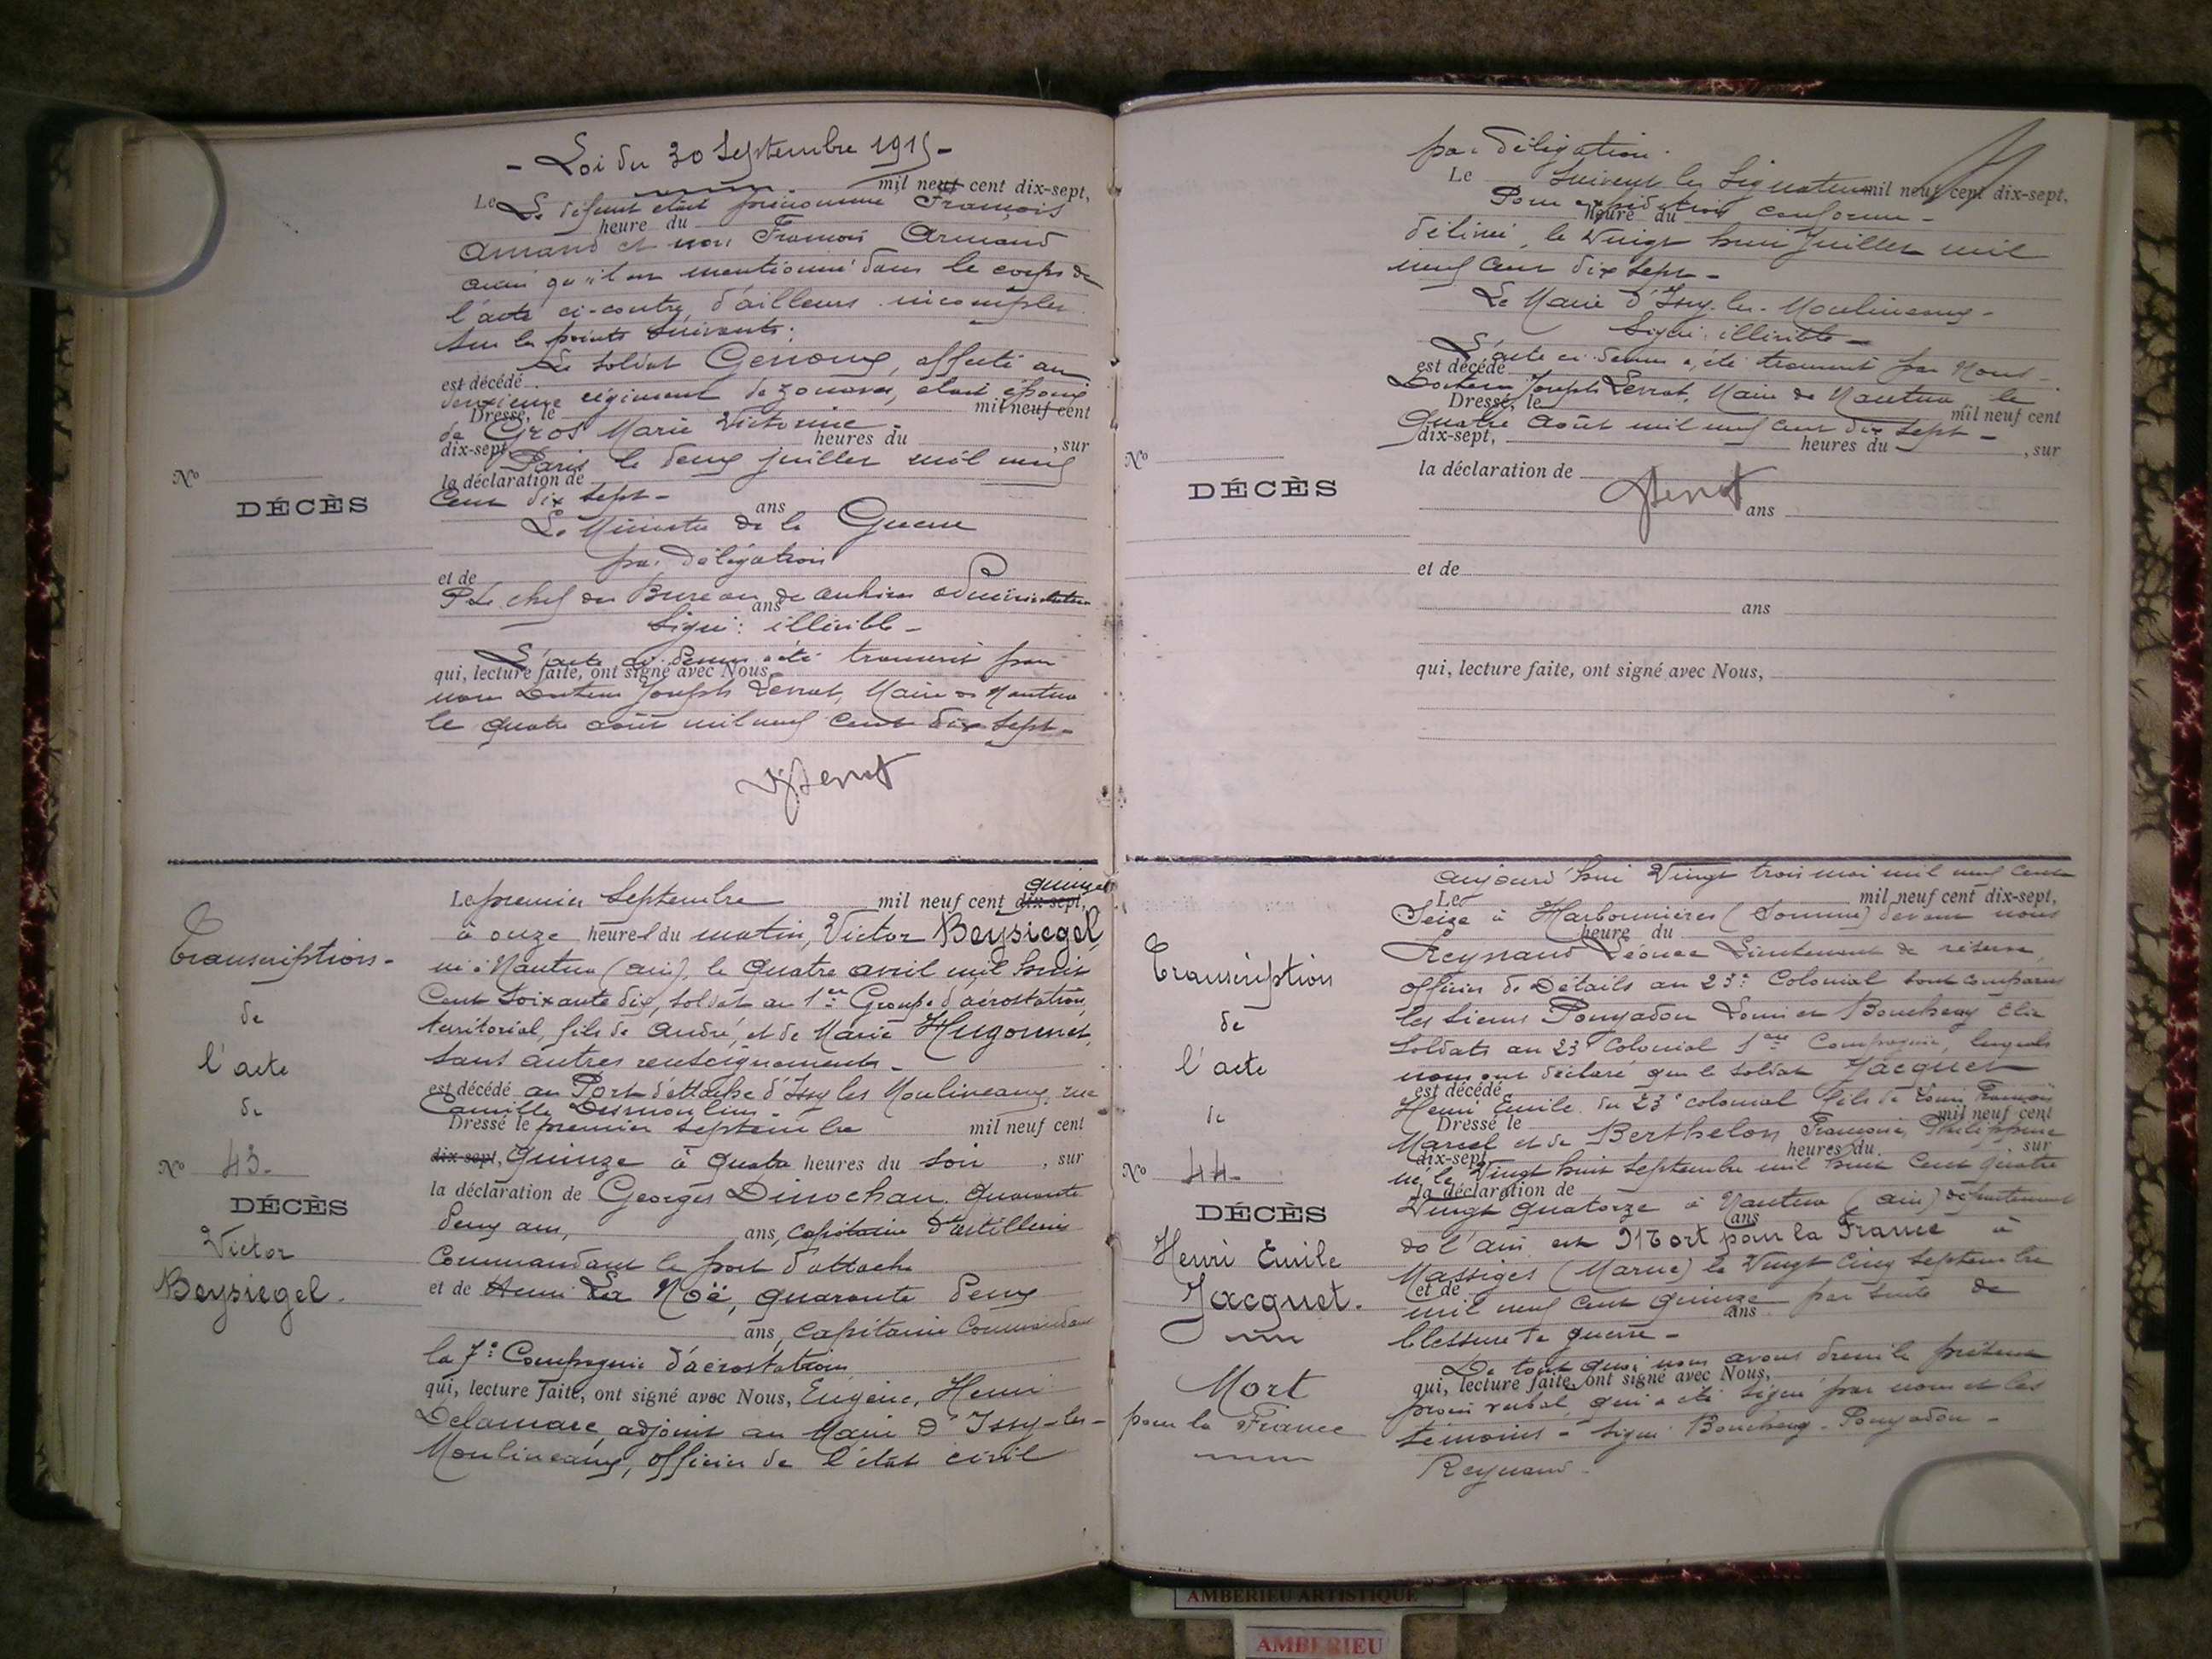 - Loi du 30 Septembre 1915 -
Le mil neuf cent dix-sept,
Le défunt était prénommé François
heure du
Armand et non François Armand
ainsi qu'il est mentionné dans le corps de
l'acte ci-contre, d'ailleurs incomplet
sur les points suivants :
Le soldat Genoux, affecté au
est décédé
deuxième régiment de zouaves, était époux
Dressé, le mil neuf cent
de Gros Marie Victorine -
dix-sept heures du , sur
Paris le deux juillet mil neuf
la déclaration de
cent dix sept -
ans
Le Ministre de la Guerre
par délégation
et de
P. Le chef du Bureau de archives administratives
ans
Signé : illisible -
L'acte ci-dessus a été transcrit par
qui, lecture faite, ont signé avec Nous,
nous Docteur Joseph Serrat, Maire de Nantua
le quatre août mil neuf cent dix sept -
Nº
DÉCÈS
Transcription -
de
l'acte
de
Nº 43 -
DÉCÈS
Victor
Beysiegel.
Le premier Septembre mil neuf cent dix-sept, quinze
à onze heures du matin, Victor Beysiegel,
né à Nantua (ain), le quatre avril mil huit
cent soixante dix, soldat au 1er Groupe d'aérostation
territorial, fils de André, et de Marie Hugonnet,
sans autres renseignements -
est décédé au Port d'attache d'Issy les Moulineaux, rue
Camille Desmoulins -
Dressé le premier septembre mil neuf cent
dix-sept, quinze à quatre heures du soir , sur
la déclaration de Georges Dinochau, quarante
deux ans, ans, capitaine d'artillerie
Commandant le port d'attache
et de Henri La Noë, quarante deux
ans, capitaine Commandant
la 7e Compagnie d'aérostation
qui, lecture faite, ont signé avec Nous, Eugène, Henri
Delamare, adjoint au Maire d'Issy-les-
Moulineaux, officier de l'état civil
par délégation.
Le Suivent les Signatures mil neuf cent dix-sept,
Pour expédition conforme -
heure du
délivré, le vingt huit Juillet mil
neuf cent dix sept -
Le Maire d'Issy-les-Moulineaux -
Signé : illisible -
L'acte ci-dessus a été transcrit par Nous -
est décédé
Docteur Joseph Serrat, Maire de Nantua, le
Dressé, le mil neuf cent
Quatre août mil neuf cent dix sept -
dix-sept, heures du , sur
la déclaration de
ans
et de
ans
qui, lecture faite, ont signé avec Nous,
Nº
DÉCÈS
Transcription
de
l'acte
de
Nº 44 -
DÉCÈS
Henri Emile
Jacquet.
Mort
pour la France
aujourd'hui Vingt trois mai mil neuf cent
Le mil neuf cent dix-sept,
Seize à Harbonnières (Somme) devant nous
heure du
Reynaud Léonce Lieutenant de réserve,
officier de Détails au 23e Colonial sont comparus
les sieurs Pouyadou Louis et Boucheny Elie
Soldats au 23e Colonial 1ère Compagnie, lesquels
nous ont déclaré que le soldat Jacquet
est décédé
Henri Emile du 23e colonial fils de Louis François
Dressé le mil neuf cent
Marcel et de Berthelon Françoise Philippine
dix-sept heures du sur
né le Vingt huit septembre mil huit cent quatre
la déclaration de
Vingt quatorze à Nantua (ain) département
ans
de l'ain est Mort pour la France à
Massiges (Marne) le Vingt Cinq septembre
et de
mil neuf cent quinze par suite de
ans
blessure de guerre -
De tout quoi nous avons dressé le présent
qui, lecture faite, ont signé avec Nous,
procès verbal, qui a été signé par nous et les
témoins - signé Boucheny - Pouyadou -
Reynaud -
AMBERIEU ARTISTIQUE
AMBERIEU